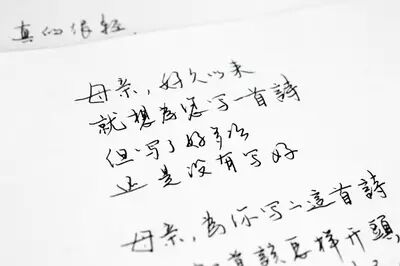 真的很轻
母亲，好久以来
就想為您写一首詩
但写了好多次
还是没有写好
母亲，為你写的這首詩
道該怎样开頭，